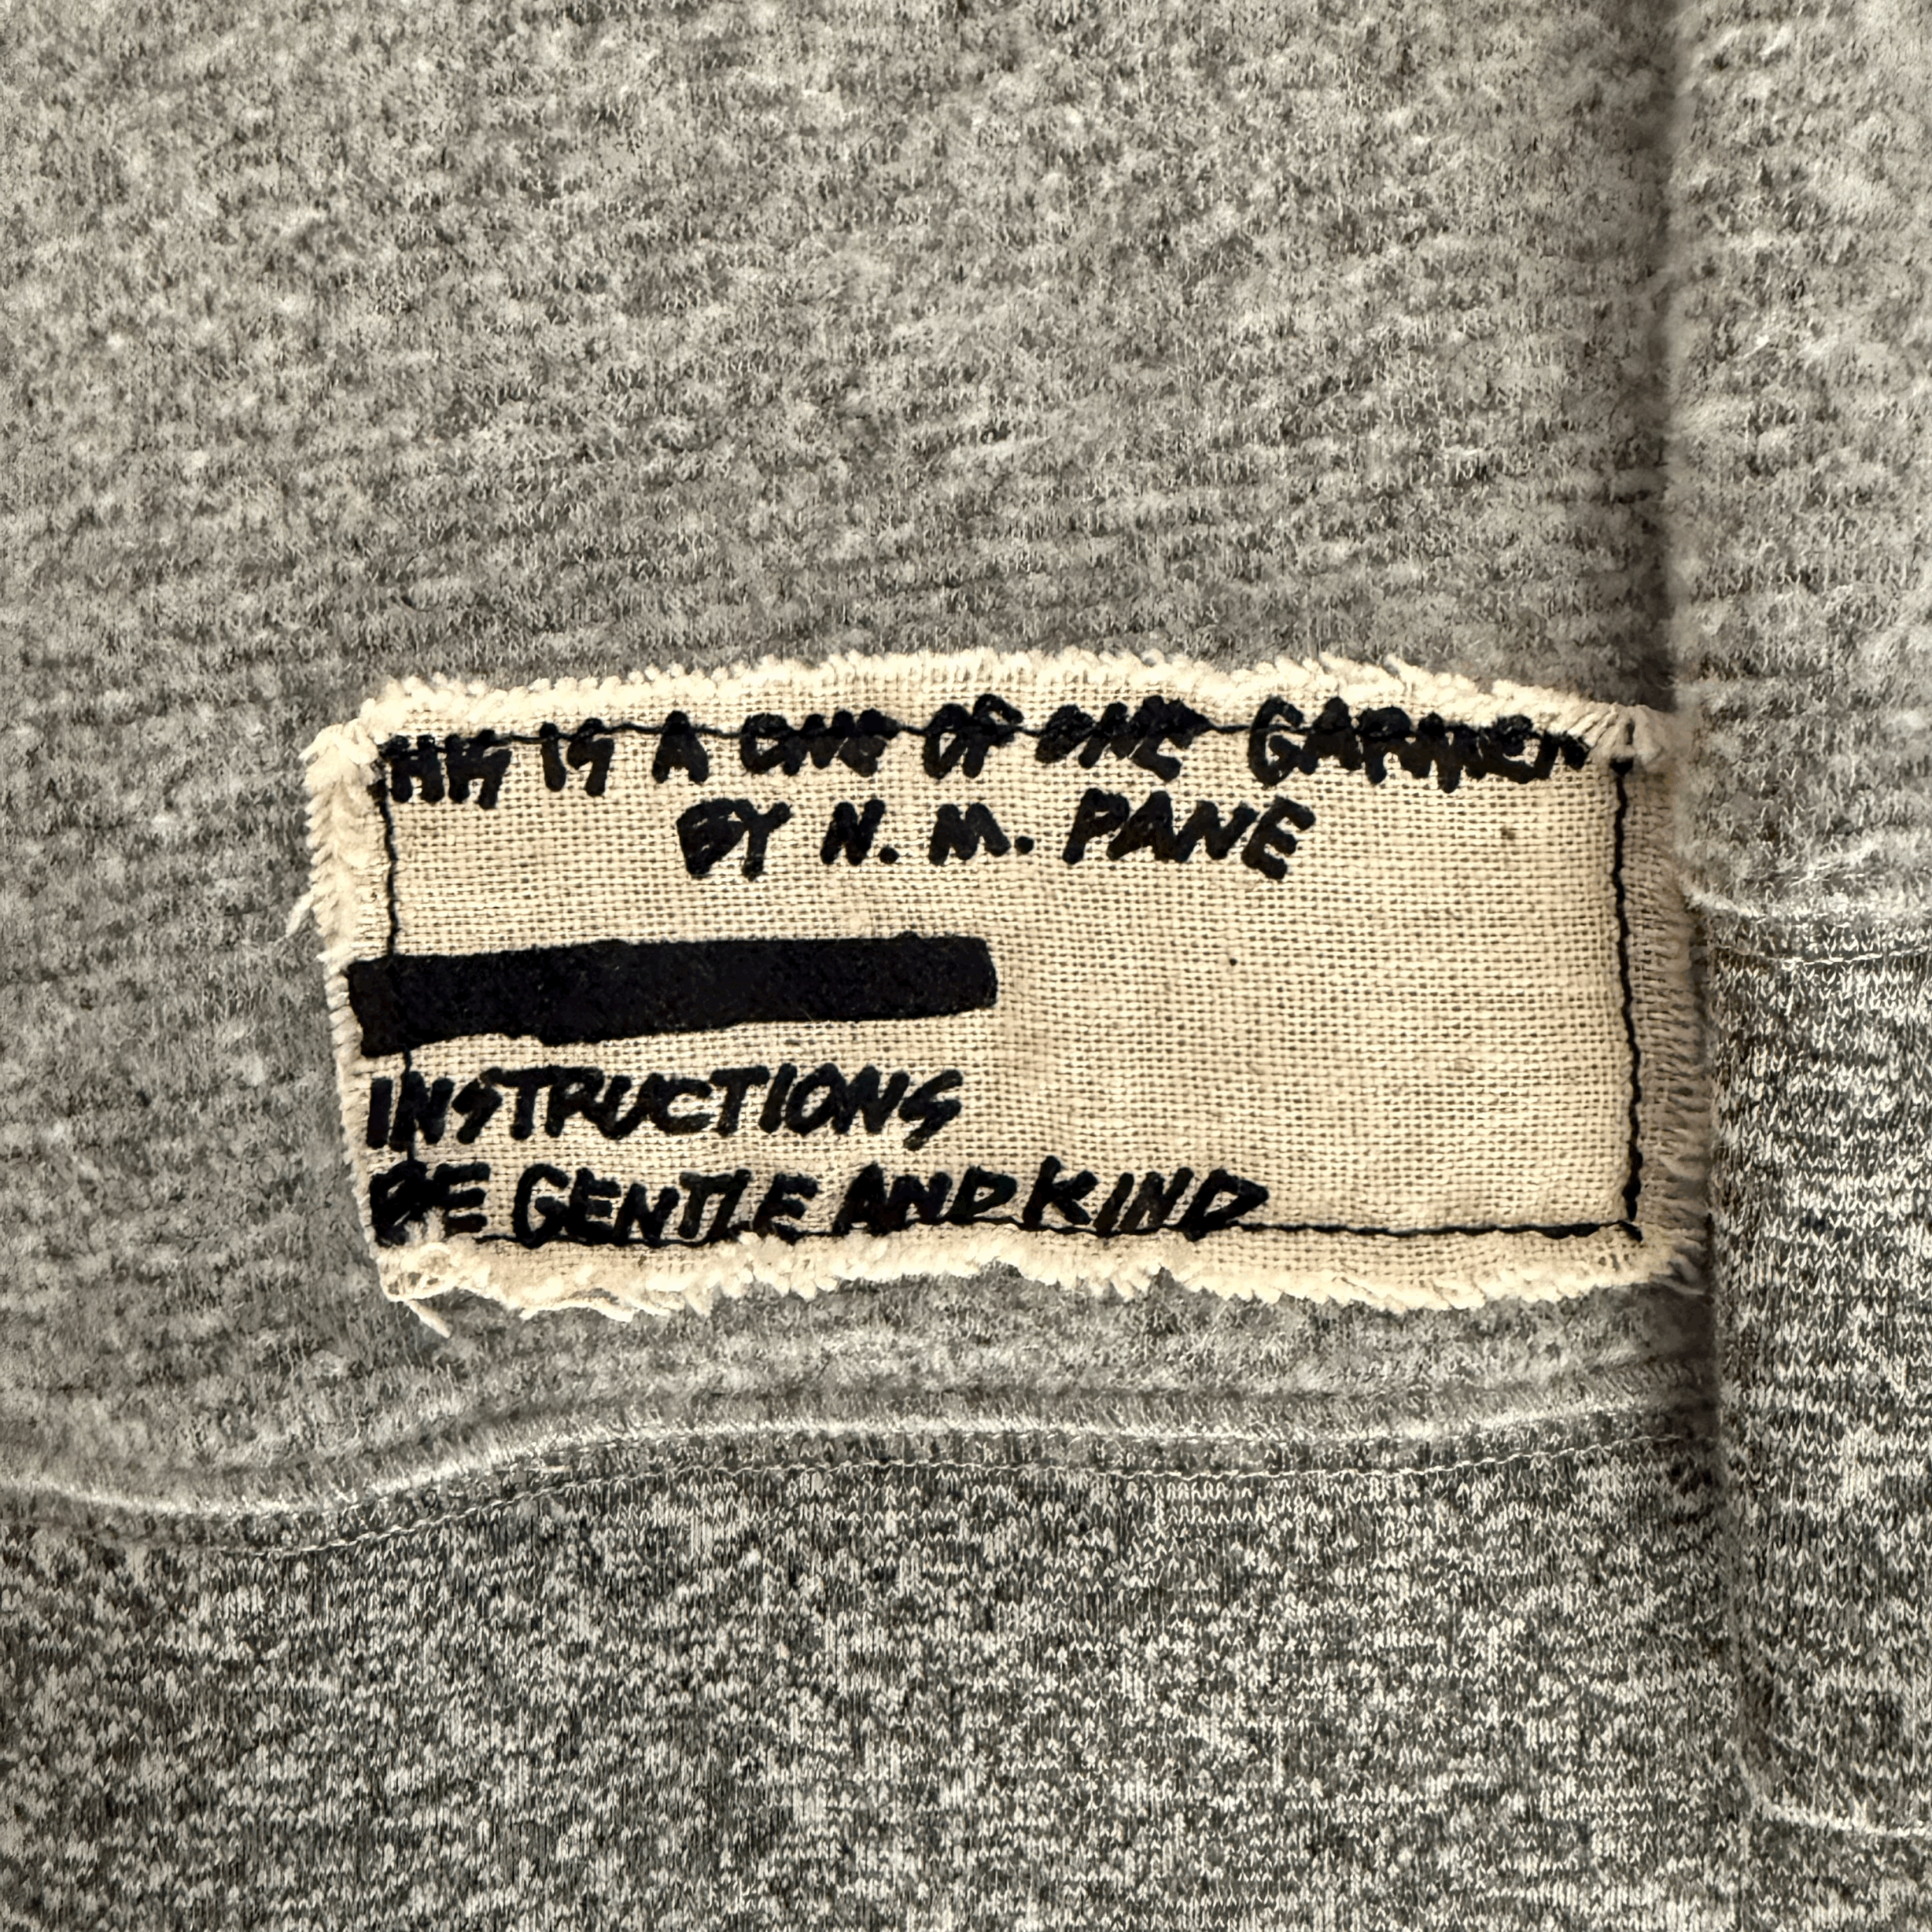 THIS IS A ONE OF ONE GARMEN
BY N. M. PANE
INSTRUCTIONS
BE GENTLE AND KIND